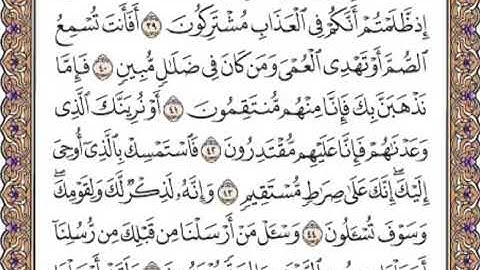 إِذ ظَّلَمْتُمْ أَنَّكُمْ فِي الْعَذَابِ مُشْتَرِكُونَ ٣٩ أَفَأَنتَ تُسْمِعُ
الصُّمَّ أَوْ تَهْدِي الْعُمْيَ وَمَن كَانَ فِي ضَلَالٍ مُّبِينٍ ٤٠ فَإِمَّا
نَذْهَبَنَّ بِكَ فَإِنَّا مِنْهُم مُّنتَقِمُونَ ٤١ أَوْ نُرِيَنَّكَ الَّذِي
وَعَدْنَاهُمْ فَإِنَّا عَلَيْهِم مُّقْتَدِرُونَ ٤٢ فَاسْتَمْسِكْ بِالَّذِي أُوحِيَ
إِلَيْكَ ۖ إِنَّكَ عَلَىٰ صِرَاطٍ مُّسْتَقِيمٍ ٤٣ وَإِنَّهُ لَذِكْرٌ لَّكَ وَلِقَوْمِكَ ۖ
وَسَوْفَ تُسْأَلُونَ ٤٤ وَسْـَٔلْ مَنْ أَرْسَلْنَا مِن قَبْلِكَ مِن رُّسُلِنَا